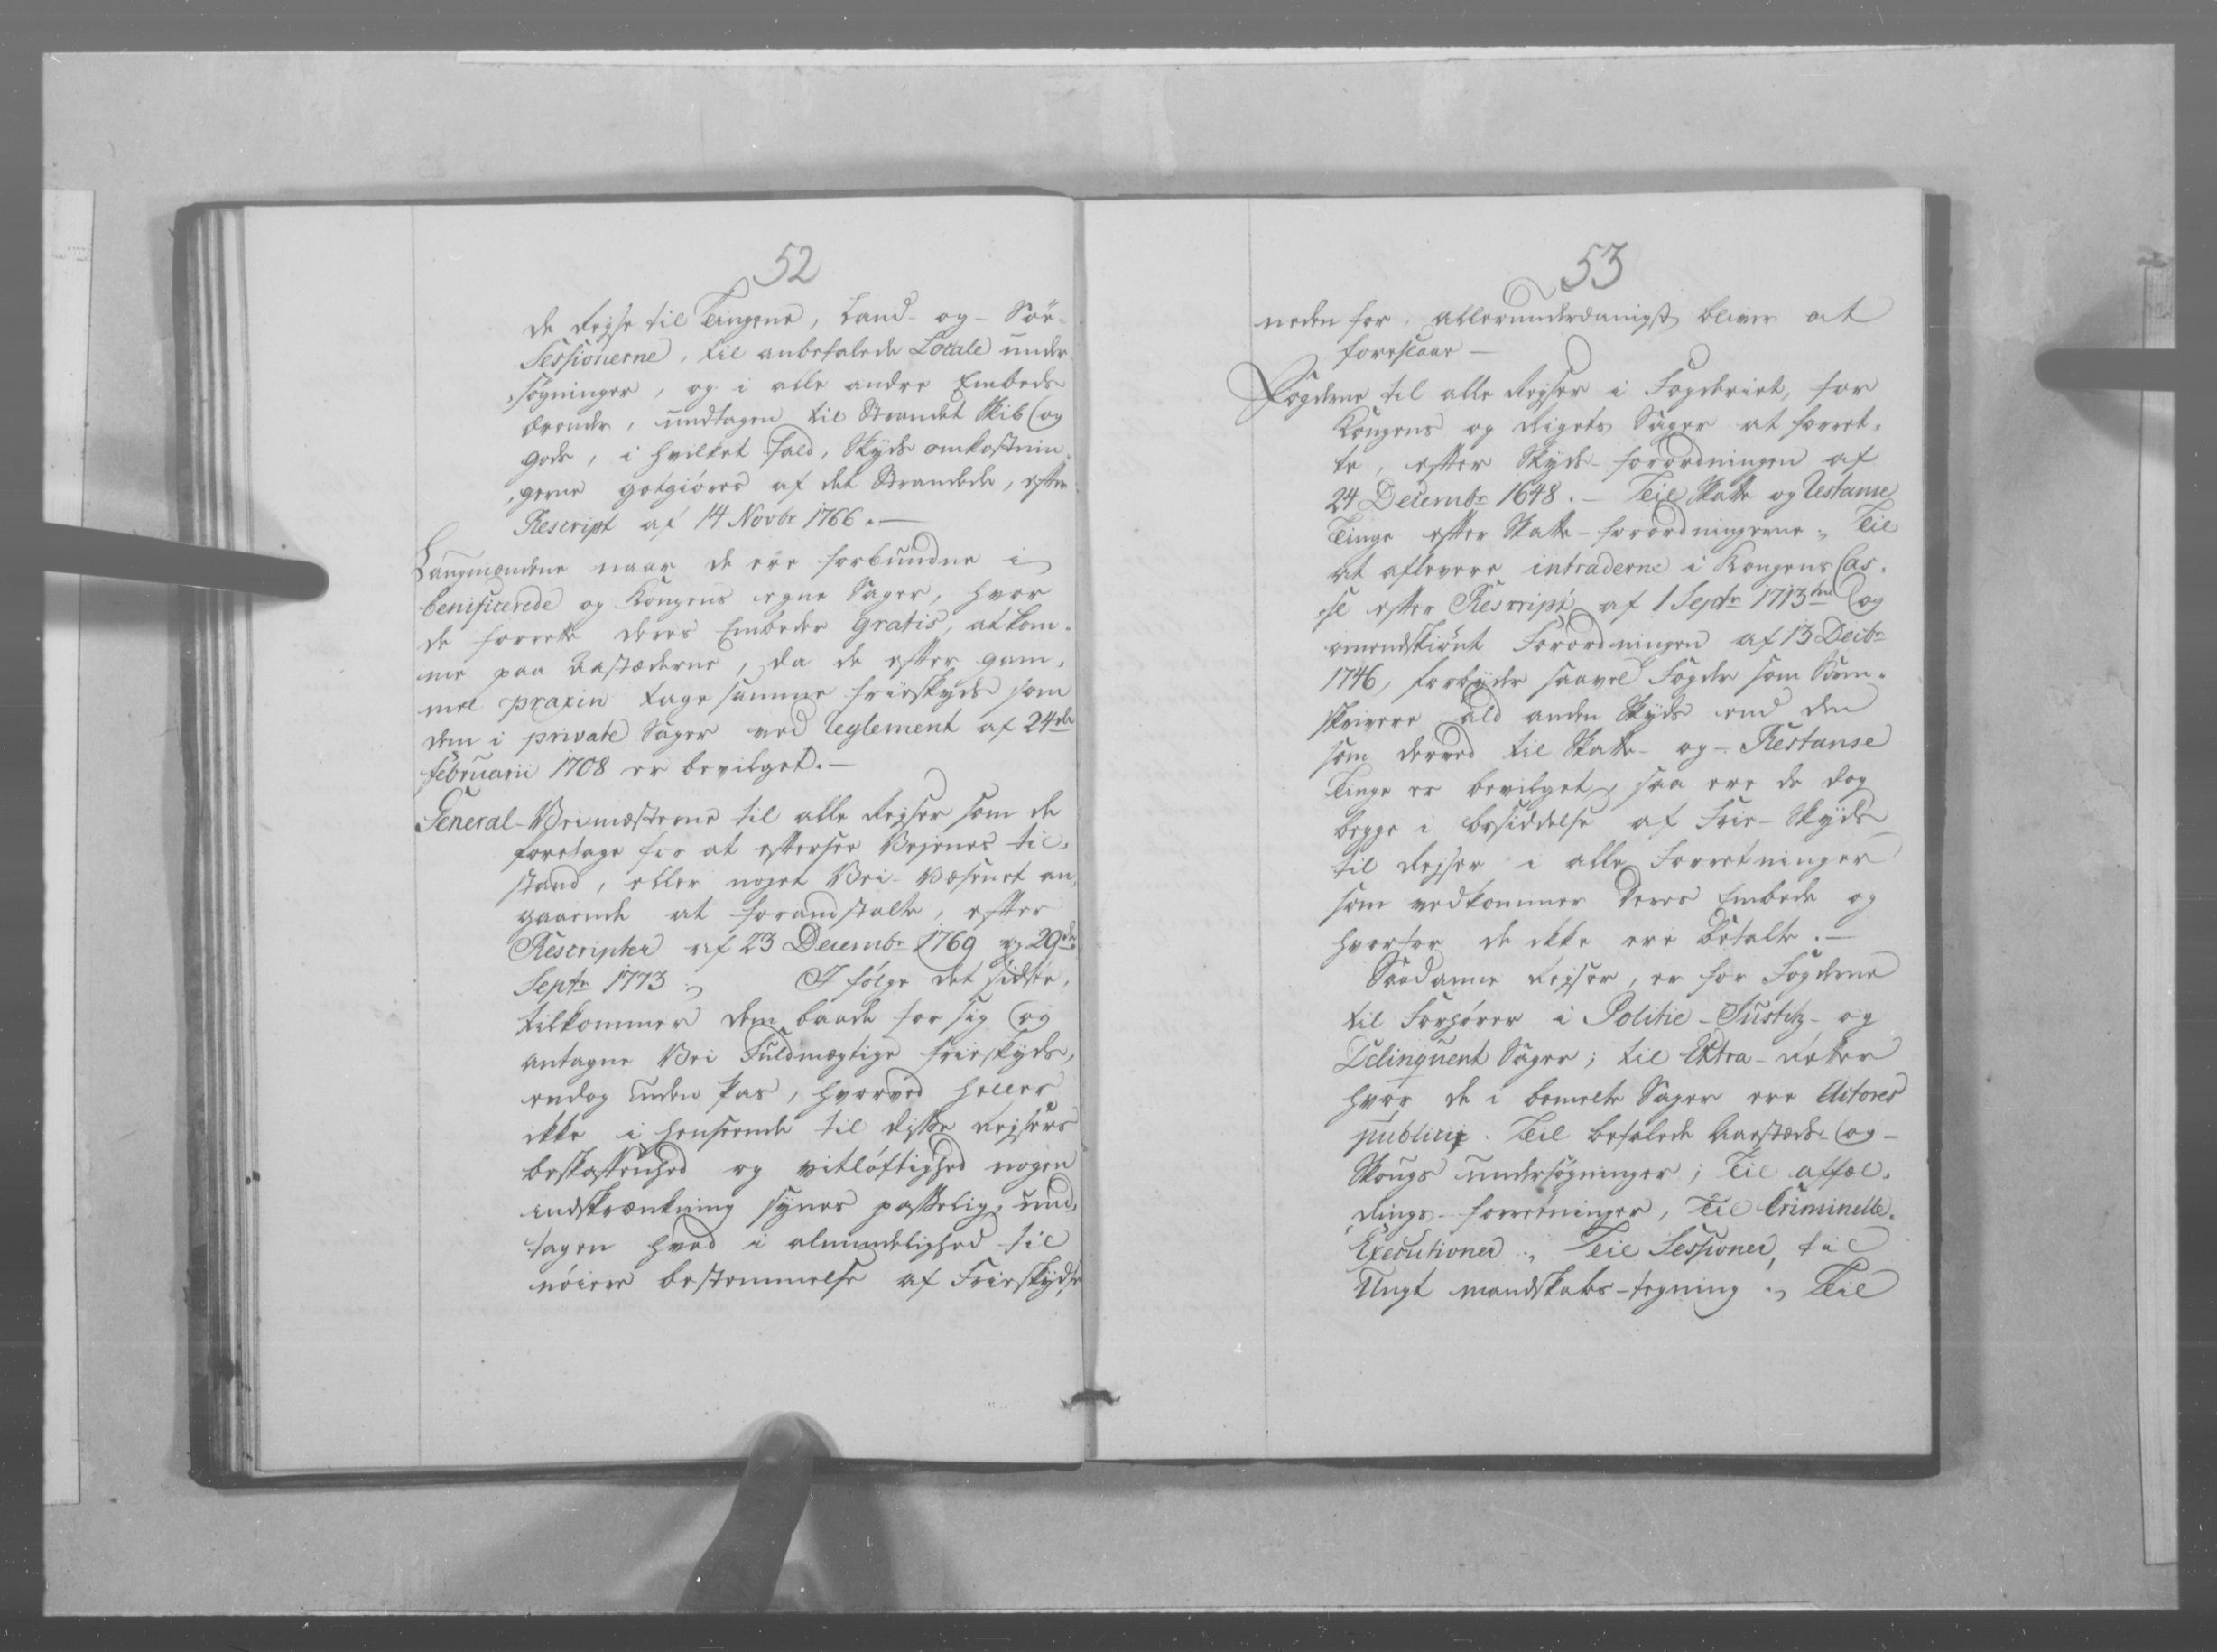 52
de Rejse til Tingene, Land- og- Söe-
Sessionerne, til anbefalede Locale under
søgninger, og i alle andre Embeds
ærender, undtagen til Strandet Skib og
gods, i hvilket fald, Skyds omkostnin
gerne godtgiøres af det Strandede, efter
Rescript af 14 Novbr 1766.-
Laugmændene naar de ere forbundne i
benificerede og Kongens egne Sager, hvor
de forrette deres Embeder gratis, at kom-
me paa Aastæderne, da de efter gam-
mel praxin tage samme frieskyds som
dem i private Sager ved Reglement af 24de
Februarii 1708 er bevilget.-
General-Veimæsterne til alle Rejser som de
foretage for at eftersee Vejenes til-
stand, eller noget Vei-Væsenet an-
gaaende at foranstalte, efter
Rescripter af 23 Decembr 1769 og 29de
Septr 1773; I følge det sidste,
tilkommer dem baade for sig og
antagne Vei Fuldmægtige frieskyds,
endog uden Pas, hvorved heller
ikke i henseende til disse Rejsers
beskaffenhed og vitløftighed nogen
indskrænkning synes passelig, und-
tagen hvad i almindelighed til
nöiere bestemmelse af Frieskydse
53
neden for, allerunderdanigst bliver at
foreslaae -
Fogderne til alle Rejser i Fogderiet, for
Kongens og Rigets Sager at forret-
te, efter Skyds-forordningen af
24 Decembr 1648.- Til Skatte og Restanse
Tinge efter Skatte-forordningerne; Til
at aflevere intraderne i Kongens Cas-
se efter Rescript af 1 Septr 1713 og
omendskiönt Forordningen af 13 Decbr
1746, forbyder saavel Fogder som Soren-
skrivere ald anden Skyds end den
som derved til Skatte- og- Restanse
Tinge er bevilget, saa ere de dog
begge i besiddelse af Frie-Skyds
til Rejser i alle Forretninger
som vedkommer deres Embede og
hvorfor de ikke ere betalte.-
Saadanne Rejser, er for Fogderne
til Forhører i Politie-Justitz- og
Delinquent Sager; til Extra-Retter
hvor de i bemelte Sager ere Actores
publici. Til befalede Aasteds- og-
Skougs undersøgninger; Til affæl-
dings-forretninger, Til Criminelle
Executioner; Til Sessioner, til
Ungt mandskabs-tegning; Til